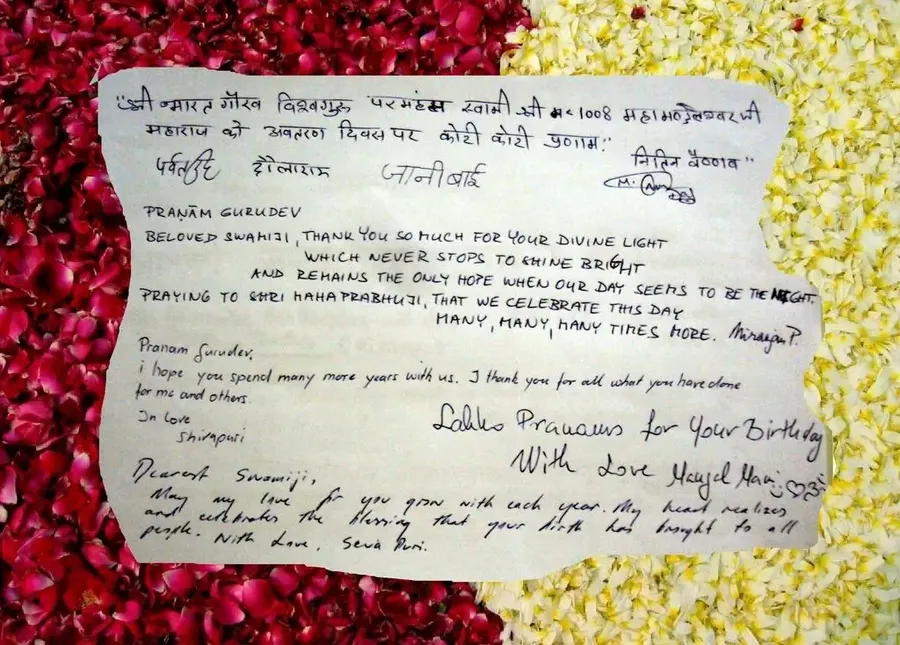 "श्री भारत गौरव विश्वगुरू परमहंस स्वामी श्री 1008 महामण्डलेश्वर जी
महाराज को अवतरण दिवस पर कोटी कोटी प्रणाम"
नितिन वैष्णव"
दौलाराम जानीबाई
PRAṆĀM GURUDEV
BELOVED SWAMIJI, THANK YOU SO MUCH FOR YOUR DIVINE LIGHT
WHICH NEVER STOPS TO SHINE BRIGHT
AND REMAINS THE ONLY HOPE WHEN OUR DAY SEEMS TO BE THE NIGHT.
PRAYING TO SHRI MAHAPRABHUJI, THAT WE CELEBRATE THIS DAY
MANY, MANY, MANY TIMES MORE.
Pranam Gurudev,
i hope you spend many more years with us. I thank you for all what you have done
for me and others.
In Love
Shivapuri
Lakho Pranams for Your Birthday
With Love Mangal
Dearest Swamiji,
May my love for you grow with each year. My heart realizes
and celebrates the blessing that your birth has brought to all
people. With Love, Seva Puri.